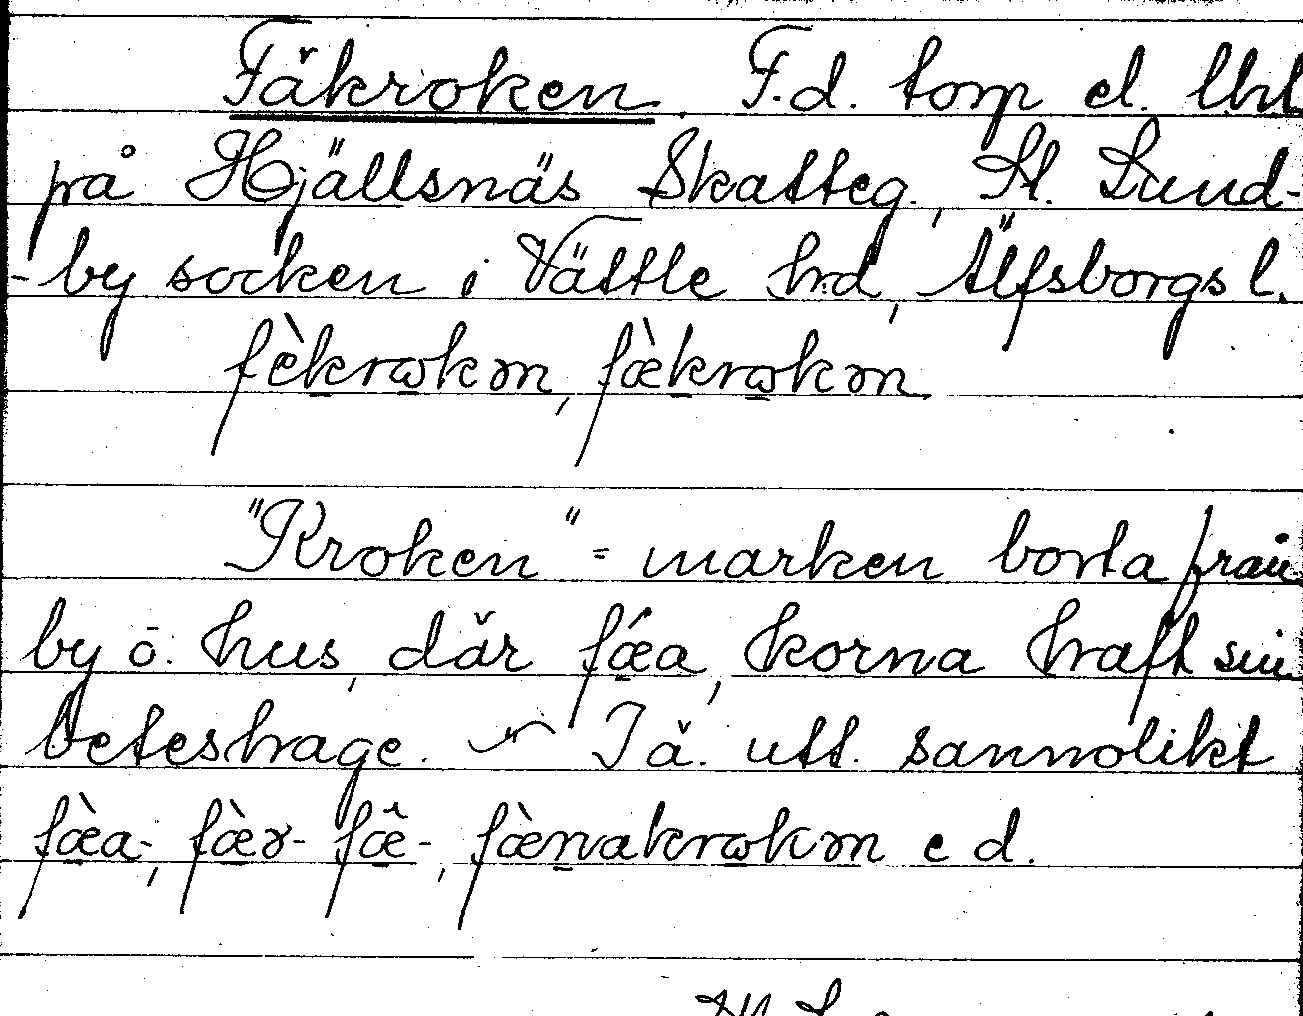 Fäkroken. F.d. torp el. lht
på Hjällsnäs Skatteg., St. Lund-
-by socken i Vättle hrd, Älfsborgs l.
fèkrωkɘn, fæ̀krωkɘn
"Kroken" = marken borta från
by o. hus, där fǽa, korna haft sin
beteshage. Iä. utt. sannolikt
fæ̀a-, fæ̀r- fæ̂-, fæ̀nakrωkɘn e d.